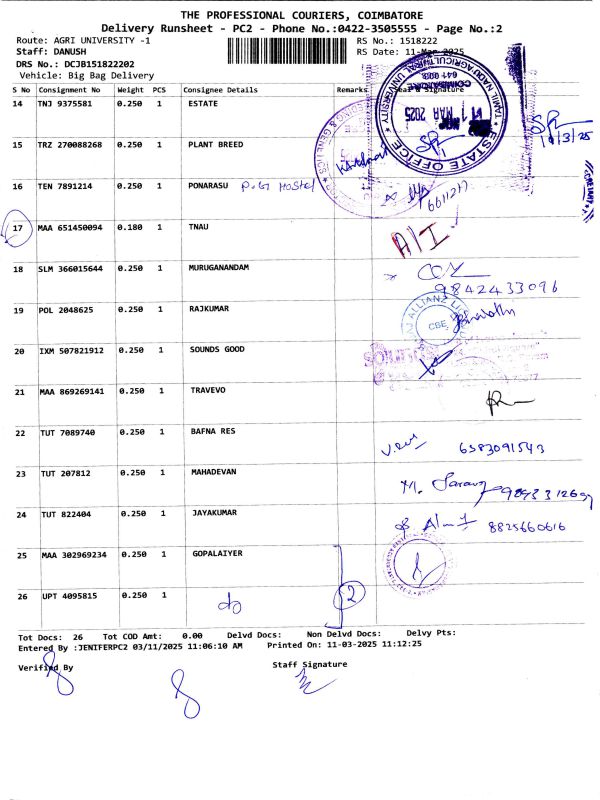 THE PROFESSIONAL COURIERS, COIMBATORE
Delivery Runsheet - PC2 - Phone No.:0422-3505555 - Page No.:2
Route: AGRI UNIVERSITY -1 RS No.: 1518222
Staff: DANUSH RS Date: 11-Mar-2025
DRS No.: DCJB151822202
Vehicle: Big Bag Delivery
S No Consignment No Weight PCS Consignee Details Remarks Seal & Signature
14 TNJ 9375581 0.250 1 ESTATE
TAMIL NADU AGRICULTURAL UNIVERSITY
COIMBATORE
641 003
11 MAR 2025
ESTATE OFFICE
11/3/25
15 TRZ 270088268 0.250 1 PLANT BREED
& GENETICS
16 TEN 7891214 0.250 1 PONARASU P.G Hostel
17 MAA 651450094 0.180 1 TNAU
A/I
18 SLM 366015644 0.250 1 MURUGANANDAM
9842433096
19 POL 2048625 0.250 1 RAJKUMAR
ALLIANZ LIFE
CBE
20 IXM 507821912 0.250 1 SOUNDS GOOD
21 MAA 869269141 0.250 1 TRAVEVO
22 TUT 7089740 0.250 1 BAFNA RES 6383091543
23 TUT 207812 0.250 1 MAHADEVAN M.
24 TUT 822404 0.250 1 JAYAKUMAR 8825660616
25 MAA 302969234 0.250 1 GOPALAIYER
26 UPT 4095815 0.250 1 do 2
Tot Docs: 26 Tot COD Amt: 0.00 Delvd Docs: Non Delvd Docs: Delvy Pts:
Entered By :JENIFERPC2 03/11/2025 11:06:10 AM Printed On: 11-03-2025 11:12:25
Verified By Staff Signature